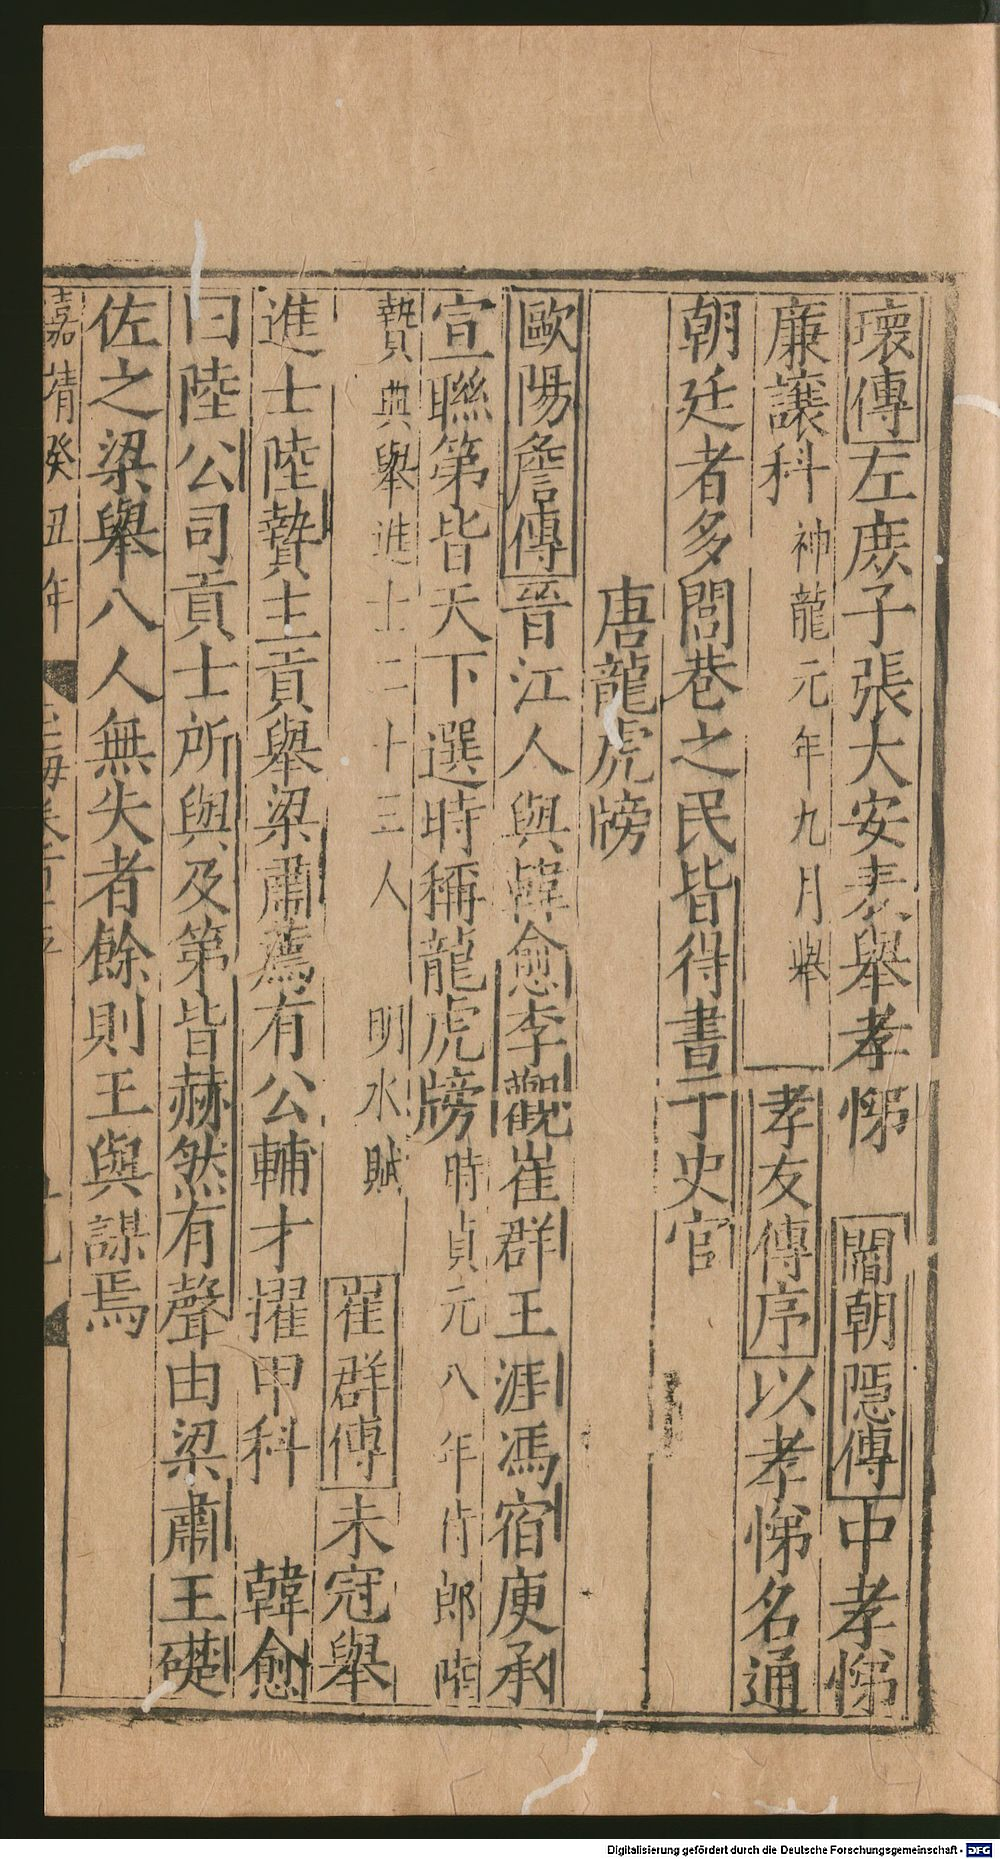 壞傳左庶子張大安表舉孝悌　閻朝隱傳中孝悌
廉讓科神龍元年九月舉　孝友傳序以孝悌名通
朝廷者多閭巷之民皆得書于史官
唐龍虎牓
歐陽詹傳晉江人與韓愈李觀崔群王涯馮宿庾承
宣聯第皆天下選時稱龍虎牓時貞元八年侍郎陸
贄典舉進士二十三人　明水賦　崔群傳未冠舉
進士陸贄主貢舉梁肅薦有公輔才擢甲科　韓愈
曰陸公司貢士所與及第皆赫然有聲由梁肅王礎
佐之梁舉八人無失者餘則王與謀焉
嘉靖癸丑年
Digitalisierung gefördert durch die Deutsche Forschungsgemeinschaft - DFG